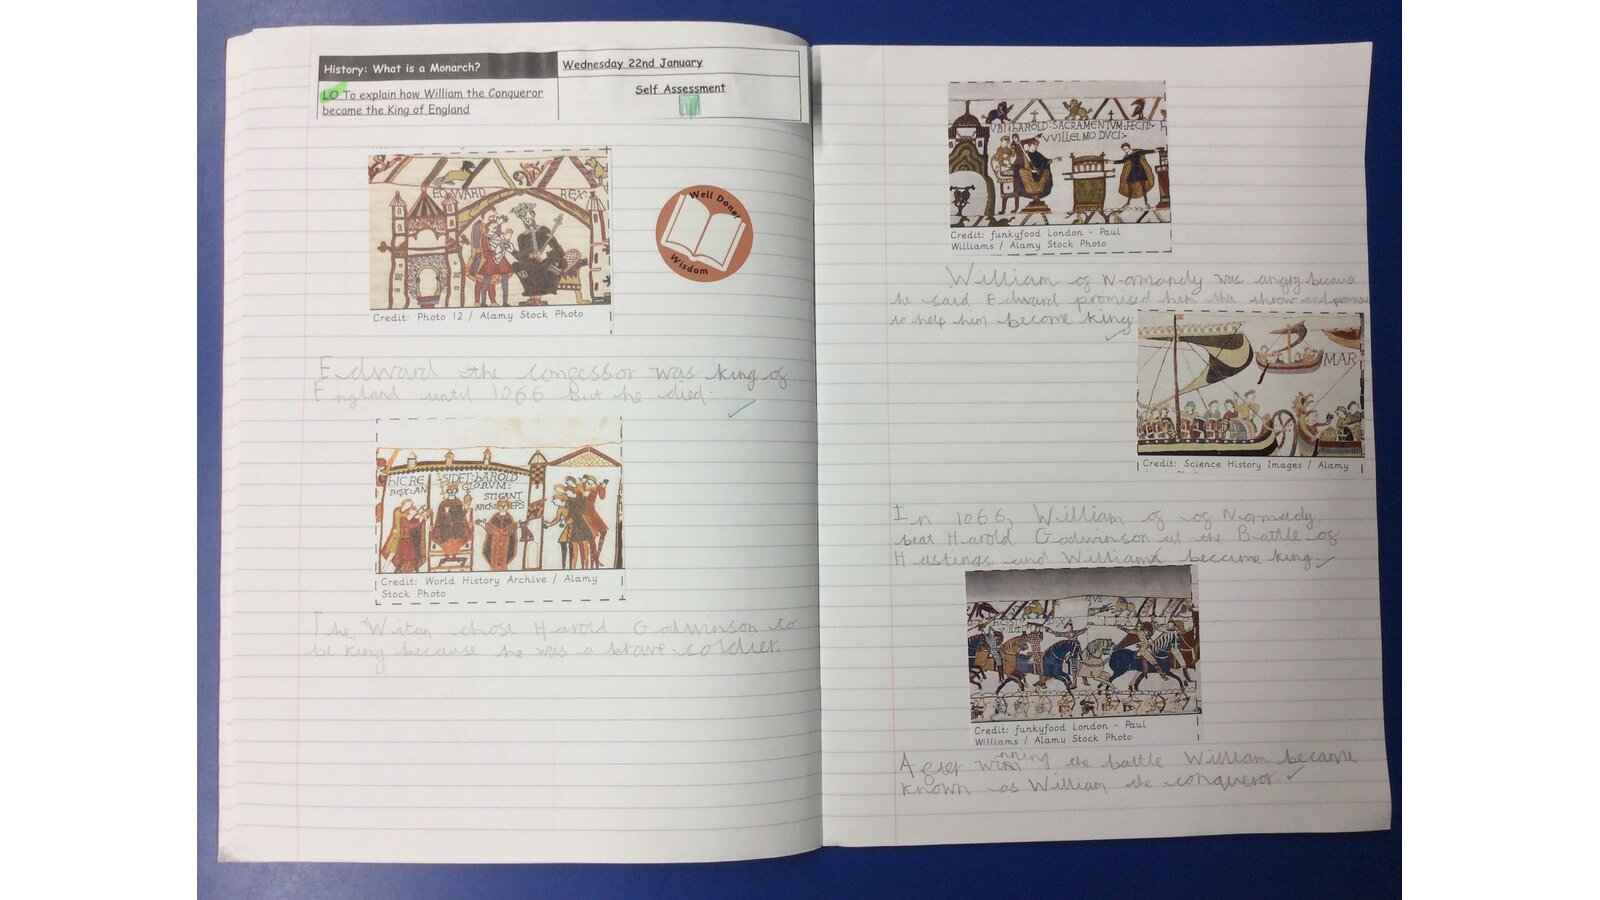 History: What is a Monarch?
Wednesday 22nd January
LO To explain how William the Conqueror
became the King of England
Self Assessment
EDVVARD REX:
Credit: Photo 12 / Alamy Stock Photo
Well Done!
Wisdom
Edward the congessor was king of
England until 1066 But he died.
hIC RE SIDET:hAROLD
REX:AN GLORVM:
STIGANT
ARChIEPS
Credit: World History Archive / Alamy
Stock Photo
The Witan chose Harold Godwinson to
be king because he was a brave soldier.
VBI hAROLD:SACRAMENTVM:FECIT:
VVILLELMO DVCI:
Credit: funkyfood London - Paul
Williams / Alamy Stock Photo
William of Normandy was angry because
he said Edward promised him the throw and promise
to help him become king.
MAR
Credit: Science History Images / Alamy
In 1066, William of of Normady
beat Harold Godwinson at the Battle of
Hastings and William became king.
Credit: funkyfood London - Paul
Williams / Alamy Stock Photo
After winning the battle William became
known as William the conqueror.